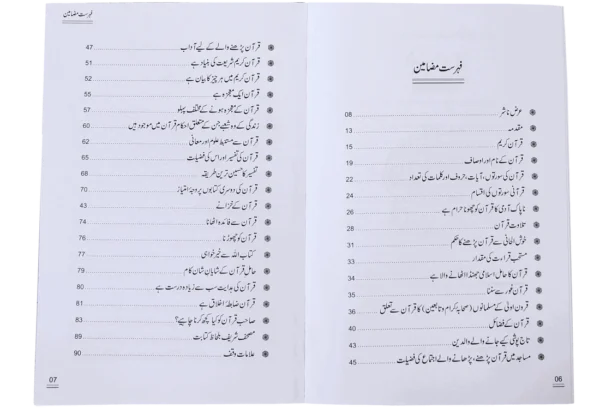 فہرست مضامین
عرض ناشر 08
مقدمہ 13
قرآن کریم 15
قرآن کے نام اور اوصاف 19
قرآن کی سورتوں، آیات، حروف اور کلمات کی تعداد 22
قرآنی سورتوں کی اقسام 24
ناپاک آدمی کا قرآن کو چھونا حرام ہے 26
تلاوت قرآن 28
خوش الحانی سے قرآن پڑھنے کا حکم 31
مستحب قراءت کی مقدار 33
قرآن کا حامل اسلامی جھنڈا اٹھانے والا ہے 34
قرآن غور سے سننا 35
قرون اولیٰ کے مسلمانوں (صحابہ کرام و تابعین) کا قرآن سے تعلق 36
قرآن کے فضائل 40
تاج پوشی کیے جانے والے والدین 43
مساجد میں قرآن پڑھنے، پڑھانے والے اجتماع کی فضیلت 45
06
فہرست مضامین
قرآن پڑھنے والے کے لیے آداب 47
قرآن کریم شریعت کی بنیاد ہے 51
قرآن کریم میں ہر چیز کا بیان ہے 52
قرآن ایک معجزہ ہے 55
قرآن کے معجزہ ہونے کے مختلف پہلو 57
زندگی کے وہ شعبے جن کے متعلق احکام قرآن میں موجود ہیں 60
قرآن سے مستنبط علوم اور معانی 62
قرآن کی تفسیر اور اس کی فضیلت 65
تفسیر کا حسین ترین طریقہ 68
قرآن کی دوسری کتابوں پر وجۂ امتیاز 70
قرآن کے خزانے 43
قرآن سے فائدہ اٹھانا 74
قرآن کو چھوڑنا 76
کتاب اللہ سے خیر خواہی 77
حامل قرآن کے شایان شان کام 79
قرآن کی ہدایت سب سے زیادہ درست ہے 80
قرآن ضابطۂ اخلاق ہے 81
صاحب قرآن کو کیا کچھ کرنا چاہیے؟ 83
مصحف شریف بلحاظ کتابت 89
علامات وقف 90
07